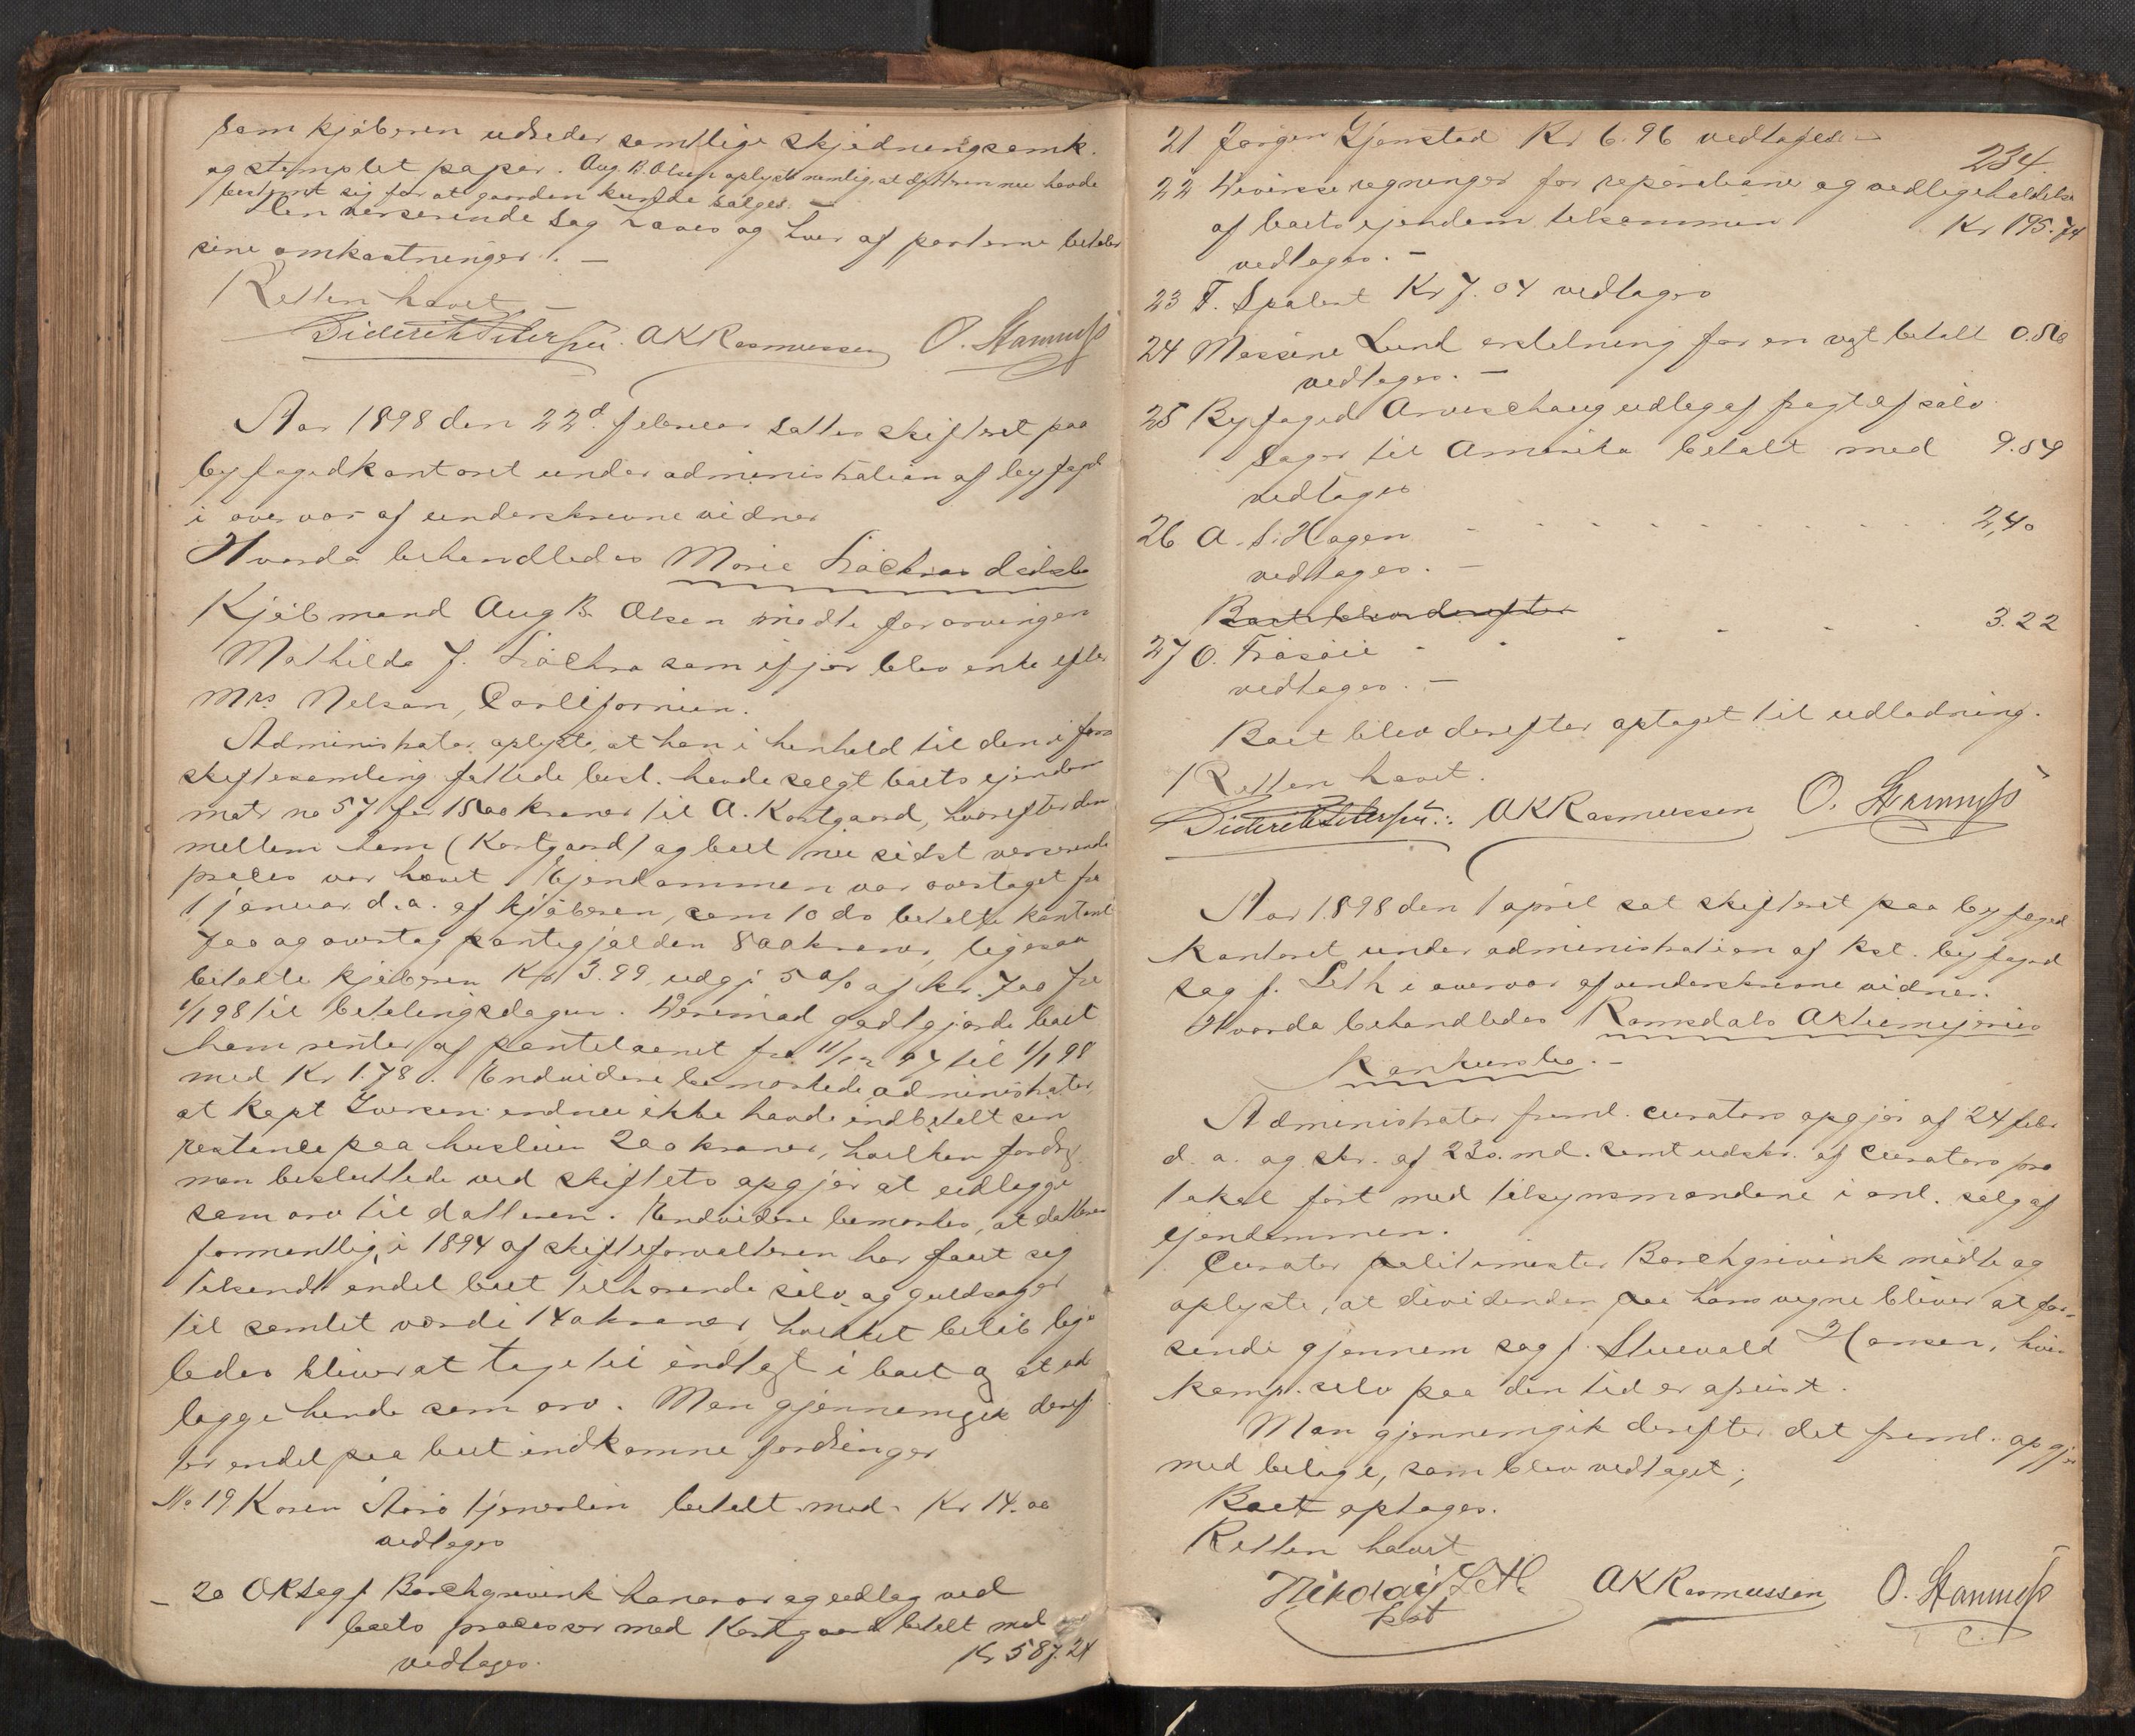 som kjøberen udreder samtlige skjødningsomk.
og stemplet papir. Aug B. Olsen oplyste nemlig, at datteren nu havde
bestemt sig for at gaarden kunde sælges. —
Den verserende sag hæves og hver af parterne betaler
sine omkostninger. —
Retten hævet —
Diderik Petersen. AKRasmussen O. Stamnæss
Aar 1898 den 22d. februar sattes skifteret paa
byfogedkontoret under administration af byfoged
i overvær af underskrevne vidner
Hvorda behandledes Marie Liæchras dødsbo
Kjøbmand Aug B. Olsen mødte for arvingen
Mathilde J. Liæchra som ifjor blev enke efter
Mrs Nelson, Carlifornien.
Administrator oplyste, at han i henhold til den i forr.
skiftesamling fattede besl. havde solgt boets ejendom
matr no 57 for 1500 kroner til A. Kortgaard, hvorefter den
mellem ham (Kortgaard) og boet nu sidst verserende
proces var hævet. Ejendommen var overtaget fra
1 januar d.a. af kjøberen, som 10 ds betalte kontant
700 og overtog pantegjælden 800 kroner, ligesaa
betalte kjøberen Kr 3.99, udgj. 5 o/o af kr. 700 fra
1/1 98 til betalingsdagen. Derimod godtgjorde boet
ham renter af pantelaanet fra 11/12 97 til 1/1 98
med Kr 1.78. Endvidere bemærkede administrator,
at Kapt Iversen endnu ikke havde indbetalt sin
restance paa husleien 200 kroner, hvilken fordrg.
man besluttede ved skiftets opgjør at udlægge
som arv til datteren. Endvidere bemærkes, at datteren
formentlig i 1894 af skifteforvalteren har faaet sig
tilsendt endel boet tilhørende sølv og guldsager
til samlet værdi 140 kroner, hvilket beløb lige
ledes bliver at tage til indtægt i boet og at ud
lægge hende som arv. Man gjennemgik deref
ter endel paa boet indkomne fordringer
No. 19 Karen Aarø tjenerløn betalt med Kr 14.00
vedtages
— 20 ORsagf Borchgrevink honorar og udlæg ved
boets processer med Kortgaard betalt med
Kr 587.24
vedtages.
234.
21 Jørgen Gjenstad Kr 6.96 vedtages. —
22 Diverse regninger for reparationer og vedligeholdelse
af boets ejendom tilsammen Kr 195.74
vedtages. —
23 F. Spalent Kr 7.04 vedtages
24 Massine Lund erstatning for en vægt betalt 0.50
vedtages. —
25 Byfoged Arveschoug udlæg af fragt af sølv
sager til Amerika betalt med 9.59
vedtages
26 A. S. Hagen 2,40
vedtages. —
Boet blev derefter
27 O. Frøsøie 3.22
vedtages. —
Boet blev derefter optaget til udlodning.
Retten hævet.
Diderik Petersen. AKRasmussen O. Stamnæss
Aar 1898 den 1 april sat skifteret paa byfoged
kontoret under administration af kst. byfoged
sagf. Leth i overvær af underskrevne vidner.
Hvorda behandledes Romsdals Aktiemejeries
Konkursbo. —
Administrator freml. curators opgjør af 24 febr
d. a. og skr. af 23 s. md. samt udskr. af curators pro
tokol ført med tilsynsmændene i anl. salg af
ejendommen.
Curator politimester Borchgrevink mødte og
oplyste, at dividenden paa hans vegne bliver at for-
sende gjennem sagf. Stuevold Hansen, hvis
komp. selv paa den tid er afreist.
Man gjennemgik derefter det freml. opgjør
med bilage, som blev vedtaget;
Boet optages.
Retten hævet
Nikolaij Leth AKRasmussen O. Stamnæss
kst